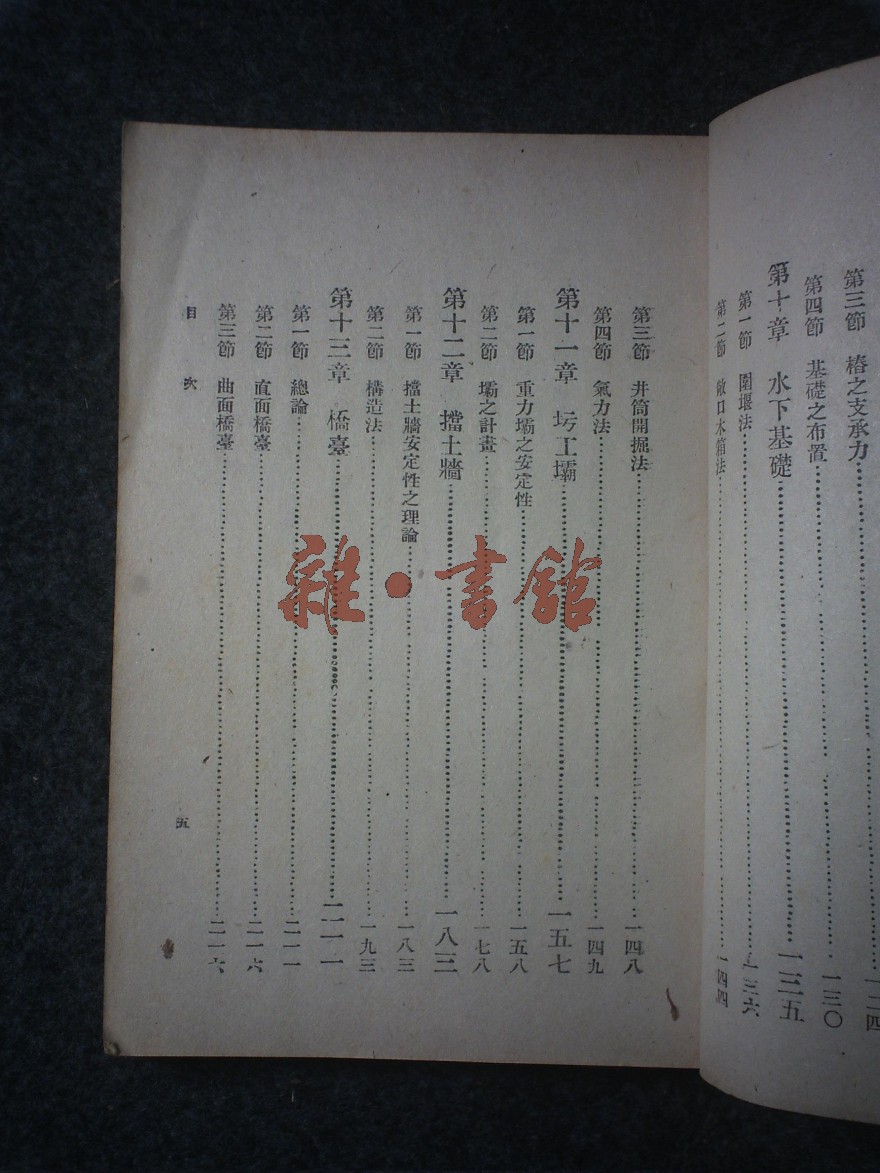 第三節　樁之支承力……一二四
第四節　基礎之布置……一三〇
第十章　水下基礎……一三五
第一節　圍堰法……一三六
第二節　敞口水箱法……一四四
第三節　井筒開掘法……一四八
第四節　氣力法……一四九
第十一章　圬工壩……一五七
第一節　重力壩之安定性……一五八
第二節　壩之計畫……一七八
第十二章　擋土牆……一八三
第一節　擋土牆安定性之理論……一八三
第二節　構造法……一九三
第十三章　橋臺……二一一
第一節　總論……二一一
第二節　直面橋臺……二一六
第三節　曲面橋臺……二一六
目次
五
雜·書館